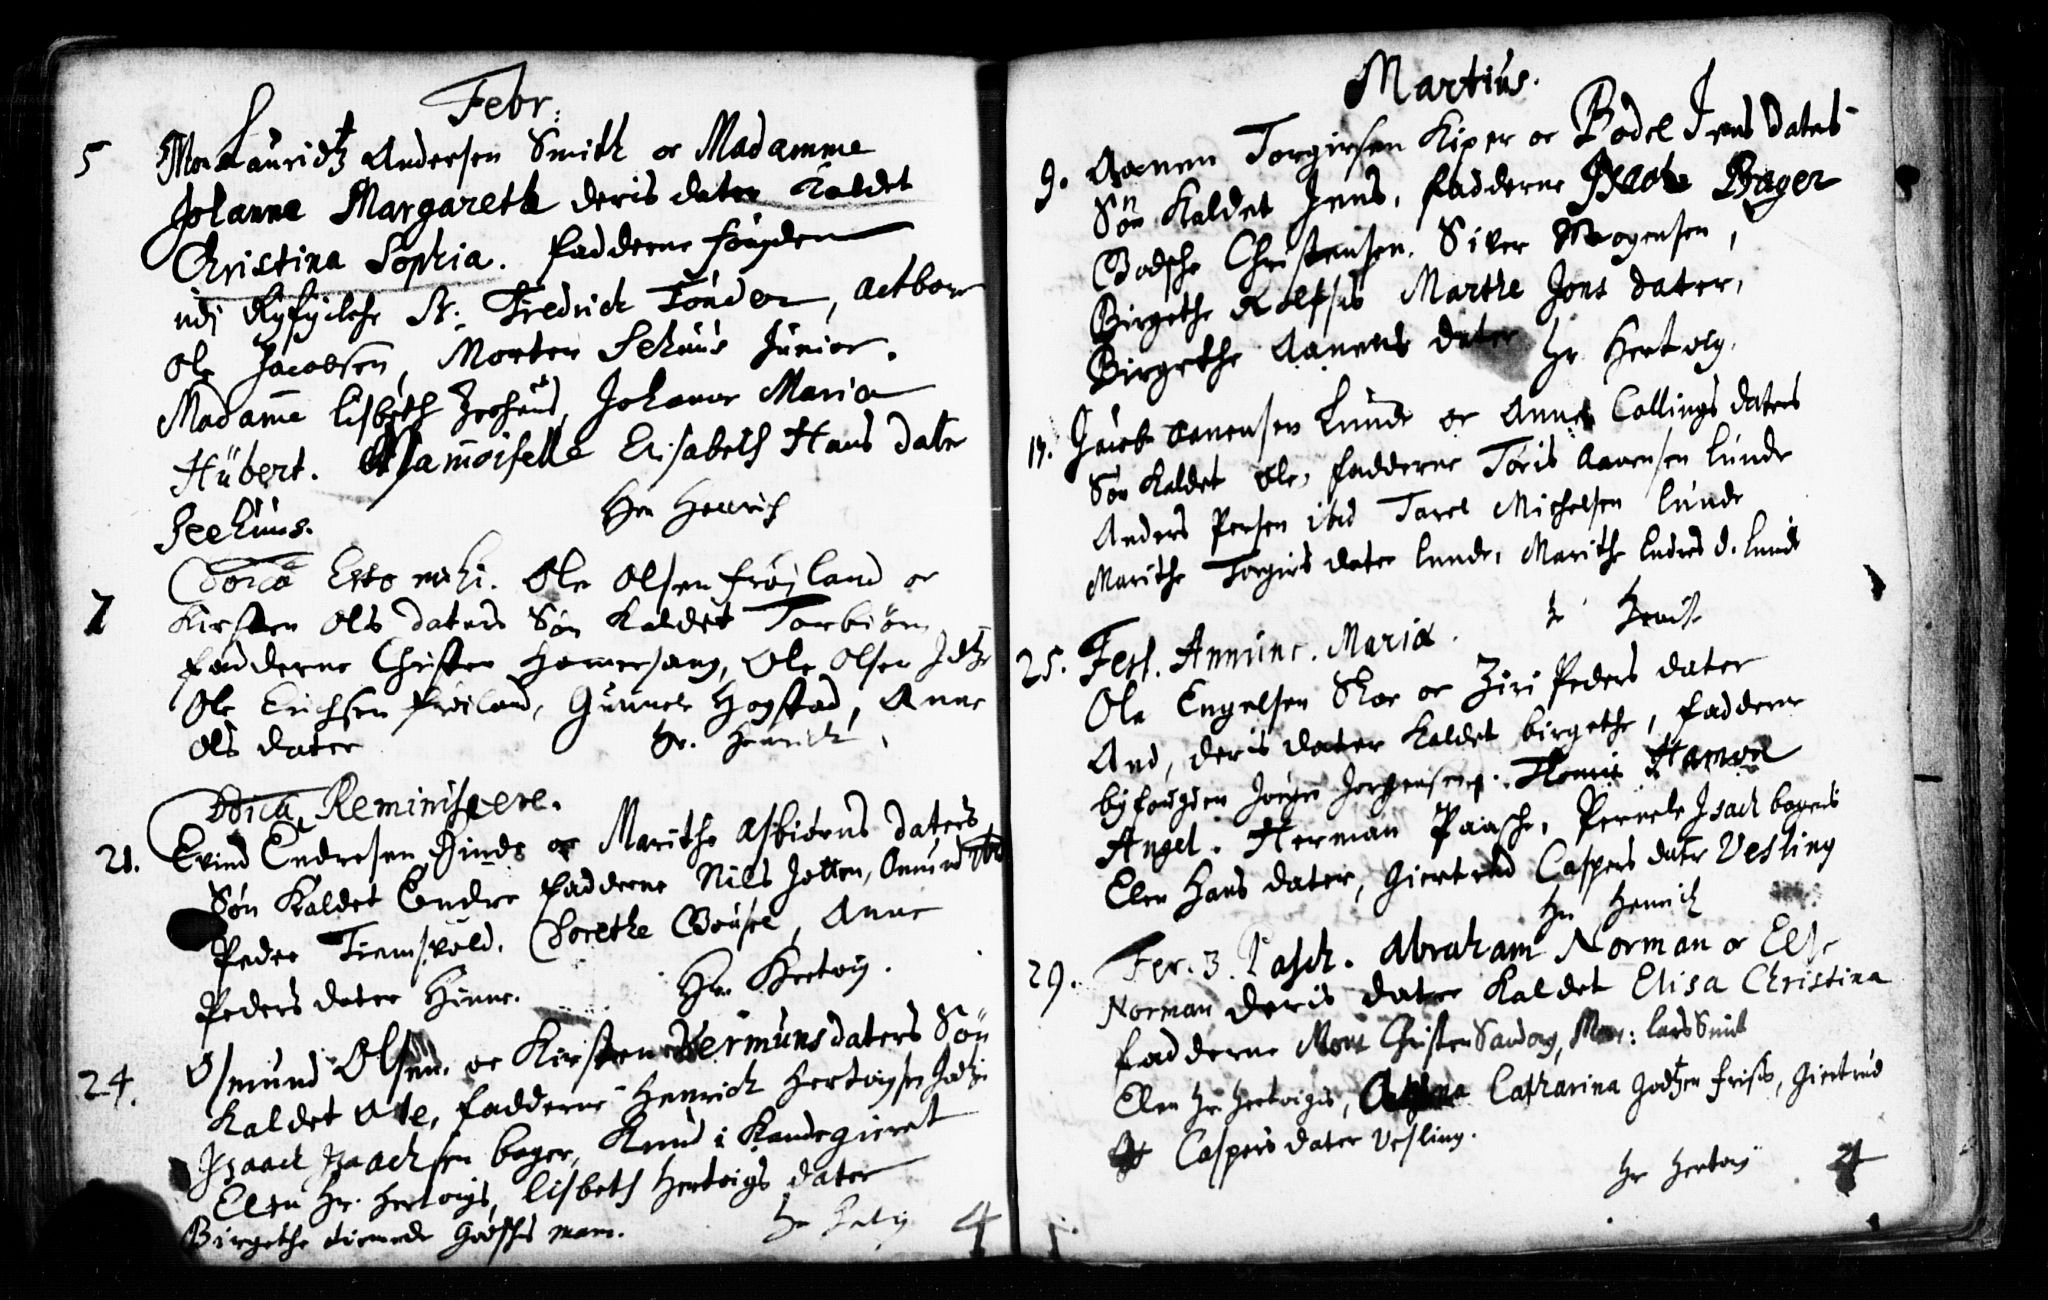 Febr:
5 Mons Lauridtz Andersen Smith oc Madamme
Johanna Margareta deris dater Kaldet
Christina Sophia. fadderne fougden
udj Ryfylche Sr. Fredrich Tönder,
Ole Jacobsen, Morten Sehuus Junior.
Madamme Lisbeth Johanna Maria
Hübert. Mammoiselle Elisabeth Hans dater
Seehuus. Her Henrich
7 Dorca Esto mihi. Ole Olsen fröiland oc
Kirsten Ols daters Sön Kaldet Torbiörn
fadderne Christen Hamersang, Ole Olsen
Ole Erichsen fröiland, Gunner Hogstad, Anne
Ols dater Hr. Henrich
Dorca Reminiscere.
21. Evind Endresen Hinde oc Marithe Asbiörns daters
Sön Kaldet Endre fadderne Nils Jotten, Onmund
Peder Tiemsvold. Dorethe Anne
Peders dater Hinne. Her Hertvig.
24. Osmund Olsen oc Kirsten Vermuns daters Sön
Kaldet Ole, fadderne Henrich Hertvigsen
Isaach Isaachsen bager, Knud i Kandegieret
Elen Hr. Hertvigs, Lisbeth Hertvigs dater
Birgethe
4
Martius.
9. Aanen Torgirsen Kiper oc Bodel Jens daters
Sön Kaldet Jens, fadderne Isach Bager
Godsche Christensen. Siver Mogensen,
Birgethe Rolfses Marthe Jons dater,
Birgethe Aanens dater Hr. Hertvig.
Jacob Aanensen Lunde oc Anne Collings daters
Sön Kaldet Ole, fadderne Toris Aanensen Lunde
Anders Persen ibid Tarel Michelsen Lunde
Marithe Torgirs dater Lunde, Marithe Endres d. Lunde
Hr
25. Fest. Annunc. Mariæ.
Ole Engelsen Skoe oc Ziri Peders dater
And, deris dater Kaldet birgethe, fadderne
byfougden Jörgen Jörgensen. Tomis Hamon
Angel. Herman Paasche, Pernele Isach bagers
Elen Hans dater, Giertrud Caspers dater Vesling
Hr Henrich
29. Fer. 3. Pasch. Abraham Norman oc Else
Norman deris dater Kaldet Elisa Christina
fadderne Mons Christen Sandorg, Mons: Lars Smit
Elen Hr Hertvigs, Catharina Godtzen frises, Giertrud
Caspers dater Vesling.
Hr Hertvig
4